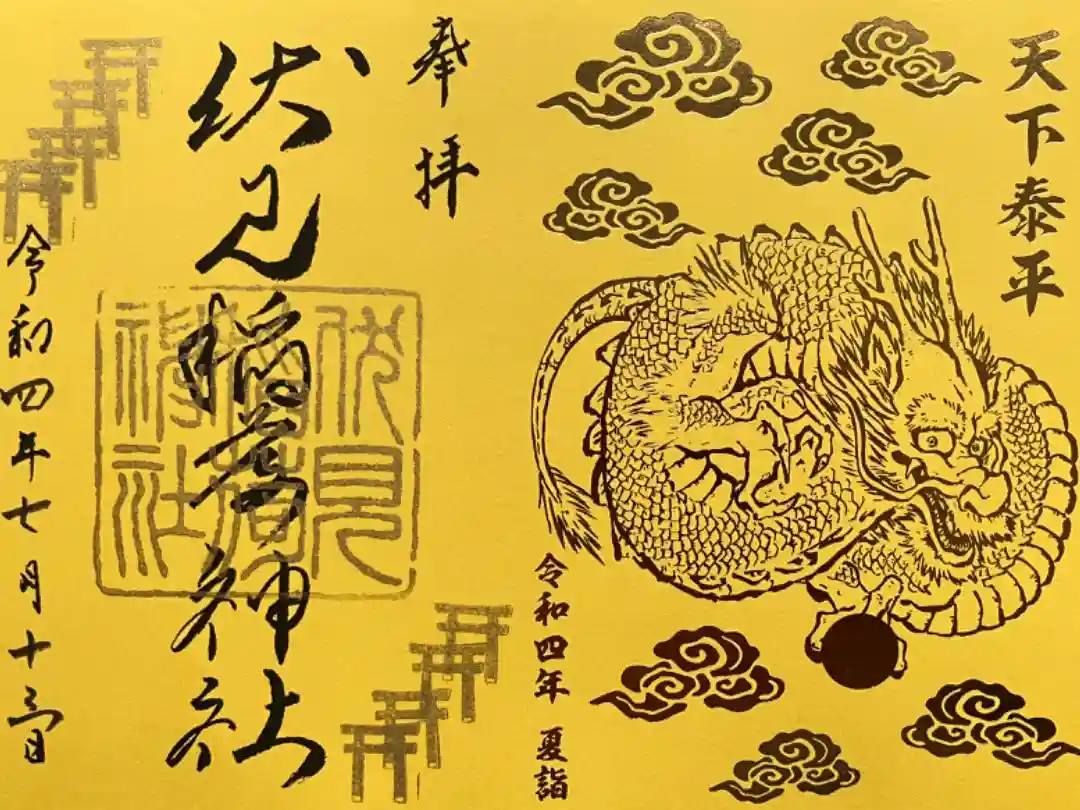 天下泰平
令和四年 夏詣
奉拝
伏見稲荷神社
伏見
稲荷
神社
令和四年七月十日